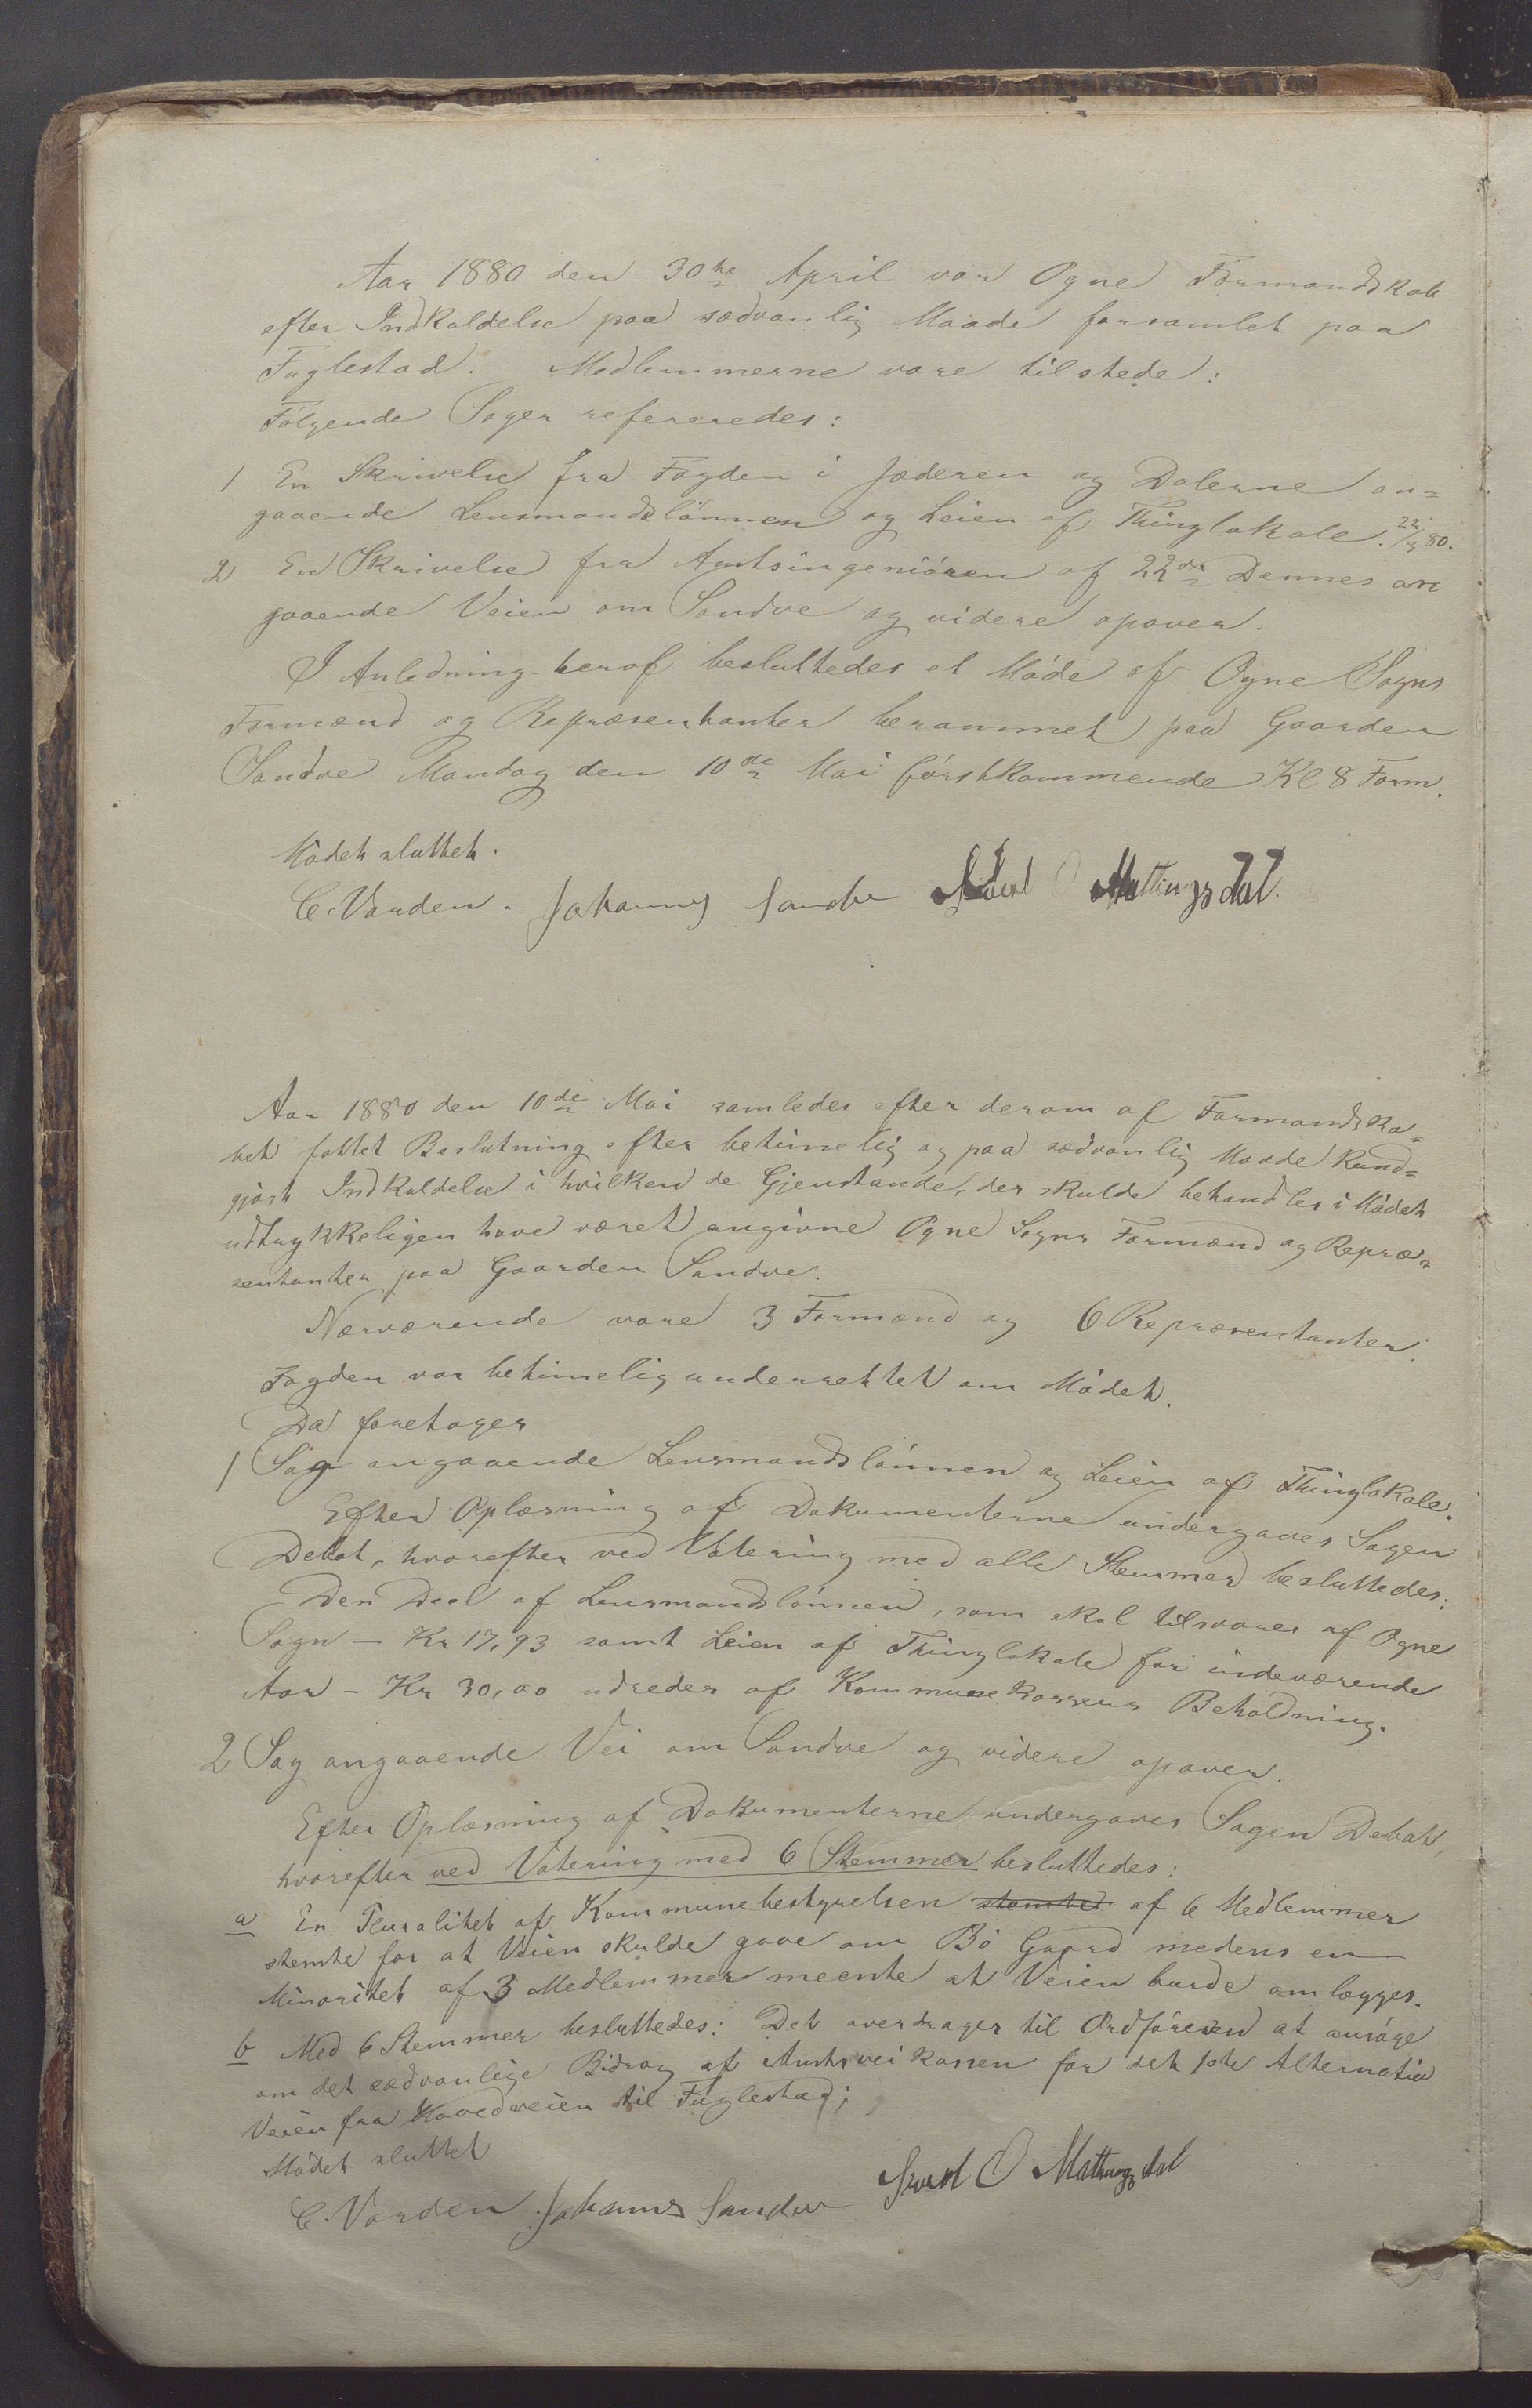 Aar 1880 den 30te April var Ogne Formandskab
efter Indkaldelse paa sædvanlig Maade forsamlet paa
Fuglestad. Medlemmerne vare tilstede:
Følgende Sager refereredes:
1 En Skrivelse fra Fogden i Jæderen og Dalerne an=
gaaende Lensmandslönnen og Leien af Thinglokale. 22/3 80.
2 En Skrivelse fra Amtsingeniören af 22de Dennes an
gaaende Veien om Sandve og videre opover.
I Anledning heraf besluttedes et Möde af Ogne Sogns
Formænd og Repræsentanter berammet paa Gaarden
Sandve Mandag den 10de Mai förstkommende Kl 8 Form.
Mödet sluttet.
C. Varden. Johannes Sandve Sivert O Mattingsdal.
Aar 1880 den 10de Mai samledes efter derom af Formandska=
bet fattet Beslutning efter betimelig og paa sædvanlig Maade kund=
gjort Indkaldelse i hvilken de Gjenstande, der skulde behandles i Mödet
udtrykkeligen have været angivne Ogne Sogns Formænd og Repræ=
sentanter paa Gaarden Sandve.
Nærværende vare 3 Formænd og 6 Repræsentanter.
Fogden var betimelig underrettet om Mödet.
Da foretoges
1 Sag angaaende Lensmandslönnen og Leien af Thinglokale.
Efter Oplæsning af Dokumenterne undergaves Sagen
Debat, hvorefter ved Votering med alle Stemmer besluttedes:
Den Deel af Lensmandslönnen, som skal tilsvares af Ogne
Sogn - Kr 17,93 samt Leien af Thinglokale for indeværende
Aar - Kr 30,00 udredes af Kommunekassens Beholdning.
2 Sag angaaende Vei om Sandve og videre opover.
Efter Oplæsning af Dokumenterne undergaves Sagen Debat,
hvorefter ved Votering med 6 Stemmer besluttedes:
a En Pluralitet af Kommunebestyrelsen stemte af 6 Medlemmer
stemte for at Veien skulde gaae om Bö Gaard medens en
Minoritet af 3 Medlemmer meente at Veien burde omlægges.
b Med 6 Stemmer besluttedes: Det overdrages til Ordföreren at ansöge
om det sædvanlige Bidrag af Amtsveikassen for det 1ste Alternativ
Veien fra Hovedveien til Fuglestad;
Mödet sluttet
C. Varden Johannes Sandve Sivert O Mattingsdal